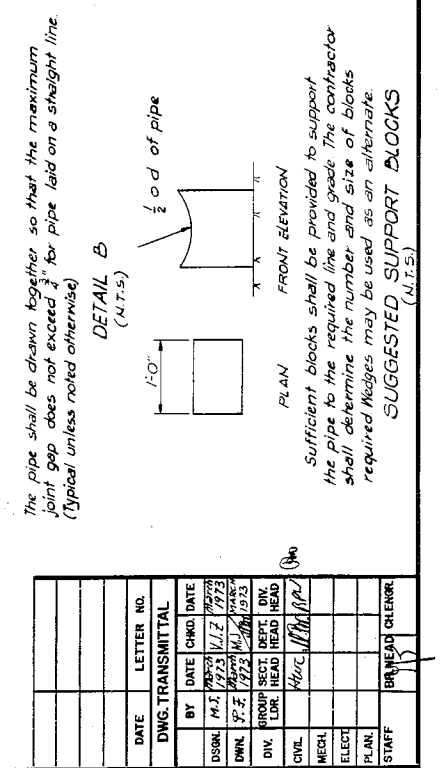 The pipe shall be drawn together so that the maximum
joint gap does not exceed 3/4" for pipe laid on a straight line.
(Typical unless noted otherwise)
DETAIL B
(N.T.S.)
1'-0"
1/2 o d of pipe
PLAN
FRONT ELEVATION
Sufficient blocks shall be provided to support
the pipe to the required line and grade. The contractor
shall determine the number and size of blocks
required. Wedges may be used as an alternate.
SUGGESTED SUPPORT BLOCKS
(N.T.S.)
DATE LETTER NO.
DWG. TRANSMITTAL
BY DATE CHKD. DATE
DSGN. M.S. March 1973 V.J.Z March 1973
DWN. P.F. March 1973 MARCH 1973
DIV. GROUP LDR. SECT. HEAD DEPT. HEAD DIV. HEAD
CIVIL
MECH.
ELECT.
PLAN.
STAFF BR. HEAD CH. ENGR.